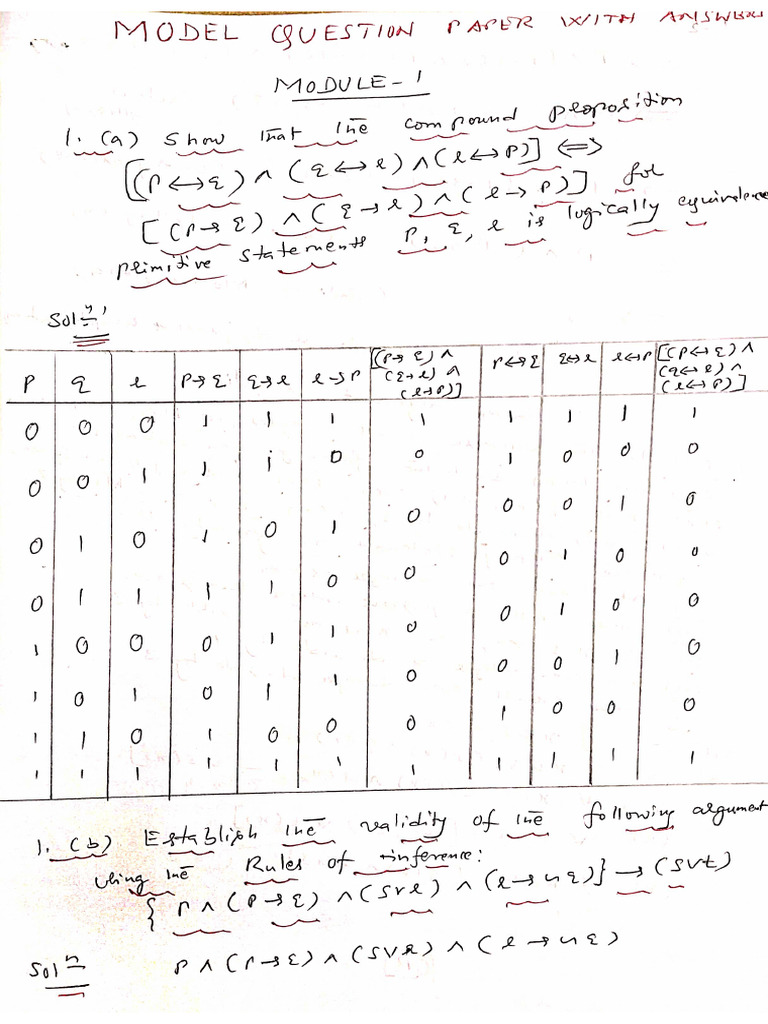 MODEL QUESTION PAPER WITH ANSWERS
MODULE-1
1. (a) Show that the compound proposition
[(P↔q) ∧ (q↔r) ∧ (r↔P)] ⇔
[(P→q) ∧ (q→r) ∧ (r→P)] for
primitive statements P, q, r is logically equivalence
Solⁿ,
P q r P→q q→r r→P [(P→q) ∧ (q→r) ∧ (r→P)] P↔q q↔r r↔P [(P↔q) ∧ (q↔r) ∧ (r↔P)]
0 0 0 1 1 1 1 1 1 1 1
0 0 1 1 1 0 0 1 0 0 0
0 1 0 1 0 1 0 0 0 1 0
0 1 1 1 1 0 0 0 1 0 0
1 0 0 0 1 1 0 0 1 0 0
1 0 1 0 1 1 0 0 0 1 0
1 1 0 1 0 0 0 1 0 0 0
1 1 1 1 1 1 1 1 1 1 1
1. (b) Establish the validity of the following argument
using the Rules of inference:
{P ∧ (P→q) ∧ (s∨r) ∧ (r→¬q)} → (s∨t)
Solⁿ P ∧ (P→q) ∧ (s∨r) ∧ (r→¬q)